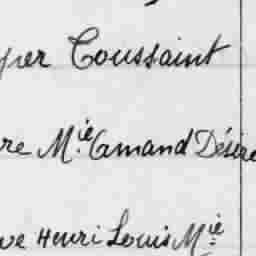 per Toussaint
re Mie Amand Désiré
ve Henri Louis Mie